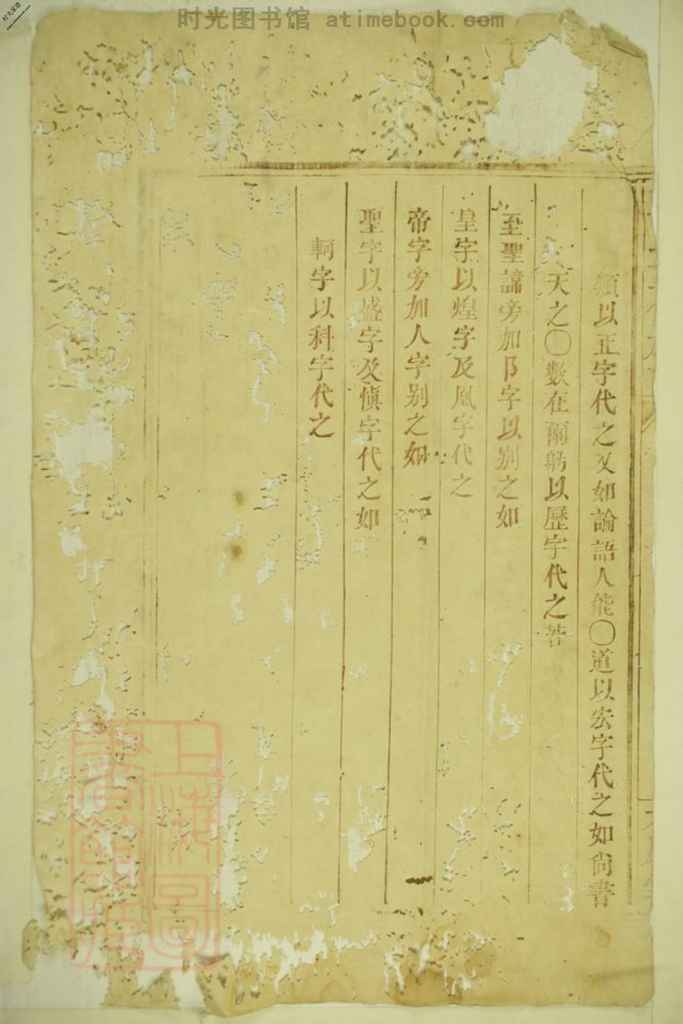 時光图书馆 atimebook.com
以正字代之又如論語人能〇道以宏字代之如尙書
天之〇數在爾躬以歷字代之若
至聖諱旁加阝字以别之如
皇字以煌字及凰字代之
帝字旁加人字别之如
聖字以盛字及愼字代之如
軻字以科字代之
上海圖書館藏